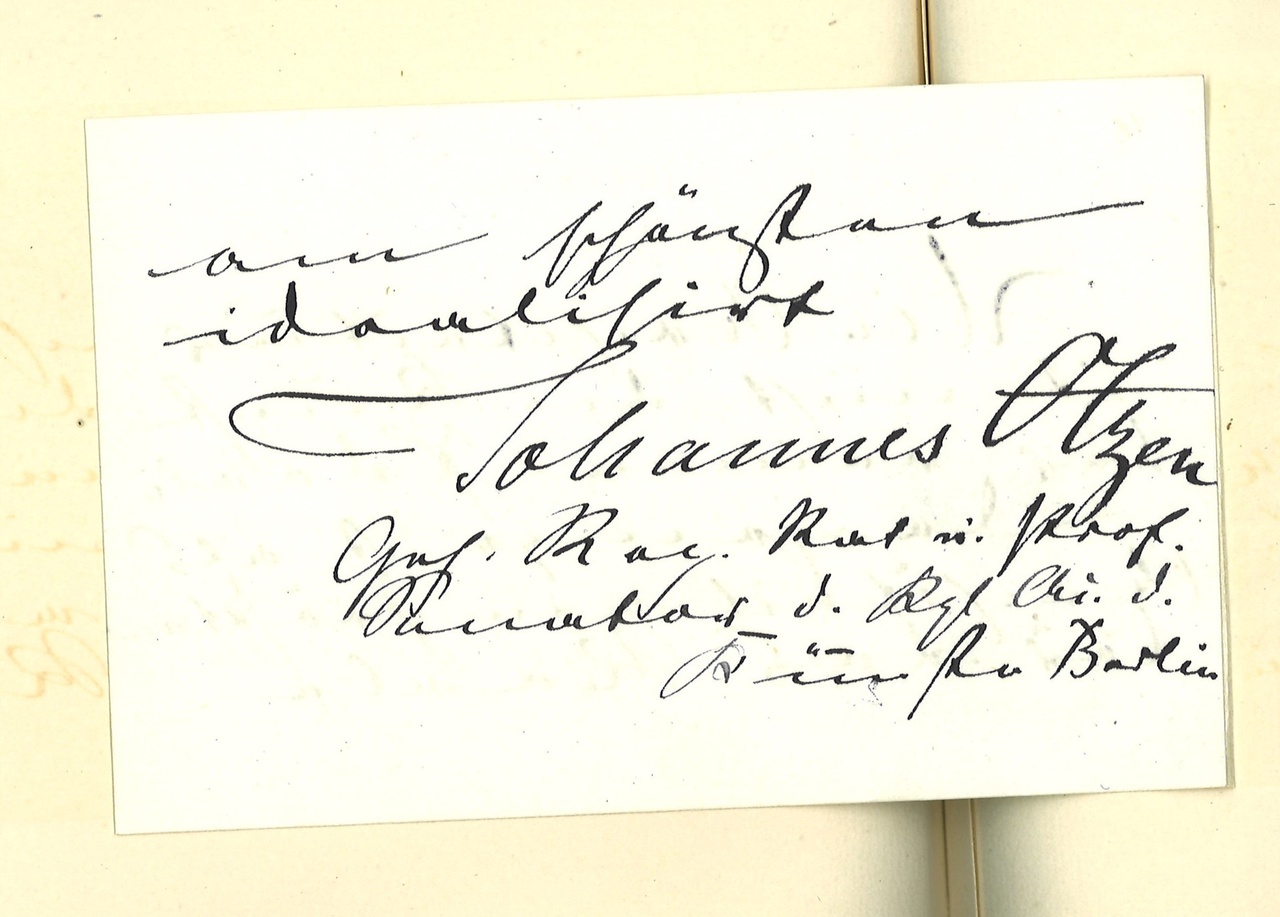 am schönsten
idealisirt
Johannes Otzen
Geh. Reg. Rat u. Prof.
Senator d. Kgl Ak. d.
Künste Berlin